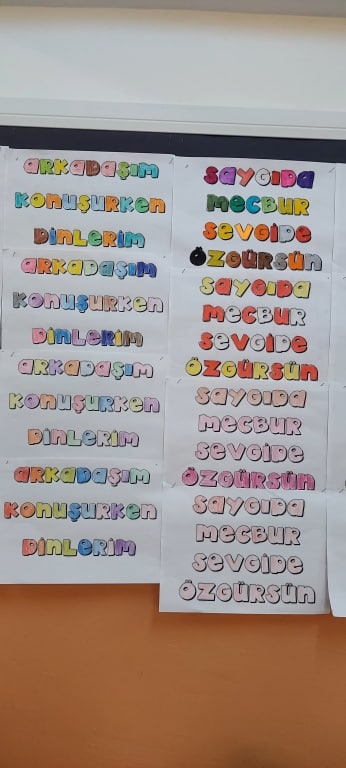 arkadaşım
konuşurken
dinlerim
arkadaşım
konuşurken
dinlerim
arkadaşım
konuşurken
dinlerim
arkadaşım
konuşurken
dinlerim
saygıda
mecbur
sevgide
özgürsün
saygıda
mecbur
sevgide
özgürsün
saygıda
mecbur
sevgide
özgürsün
saygıda
mecbur
sevgide
özgürsün